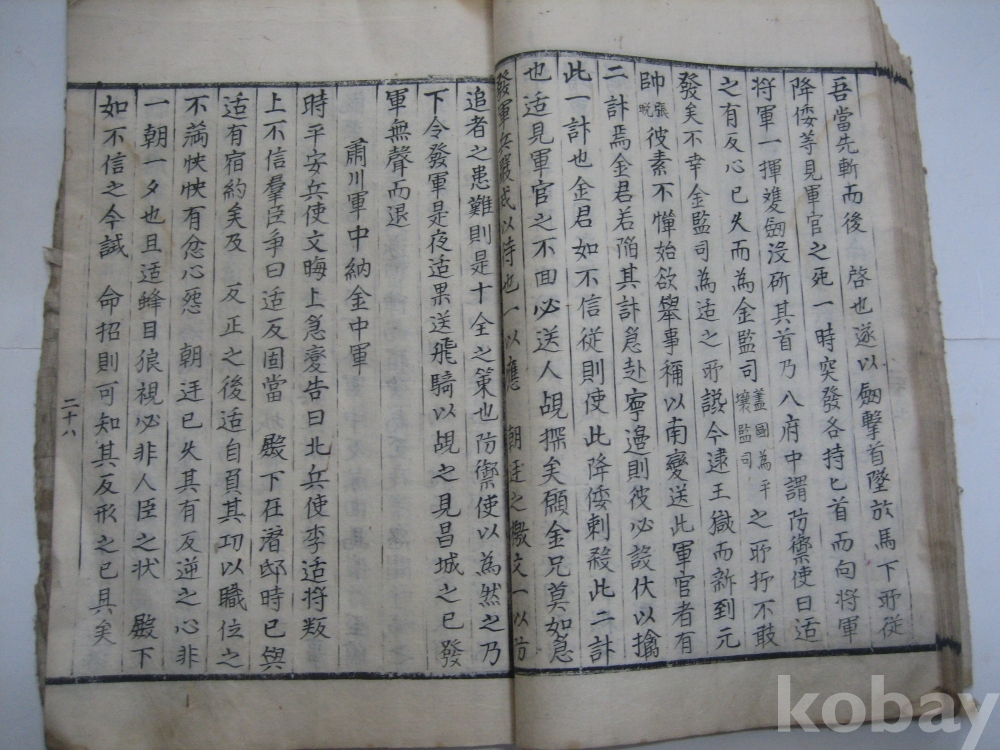 吾當先斬而後 啓也遂以劒擊首墜於馬下所從
降倭等見軍官之死一時突發各持匕首而向將軍
將軍一揮雙劒沒斫其首乃入府中謂防禦使曰适
之有反心已久而為金監司 盖國為平壤監司 之所折不敢
發矣不幸金監司為适之所說今逮王獄而新到元
帥 張晩 彼素不憚始欲舉事稱以南變送此軍官者有
二計焉金君若陷其計急赴寧邊則彼必設伏以擒
此一計也金君如不信從則使此降倭刺殺此二計
也适見軍官之不回必送人覘探矣願金兄莫如急
發軍兵嚴戒以待也一以應 朝廷之檄文一以防
追者之患難則是十全之策也防禦使以為然之乃
下令發軍是夜适果送飛騎以覘之見昌城之已發
軍無聲而退
肅川軍中納金中軍
時平安兵使文晦上急變告曰北兵使李适將叛
上不信羣臣爭曰适反固當 殿下在潛邸時已與
适有宿約矣及 反正之後适自負其功以職位之
不滿怏怏有忿心怨 朝廷已久其有反逆之心非
一朝一夕也且适蜂目狼視必非人臣之状 殿下
如不信之今誠 命招則可知其反形之已具矣
二十八
kobay